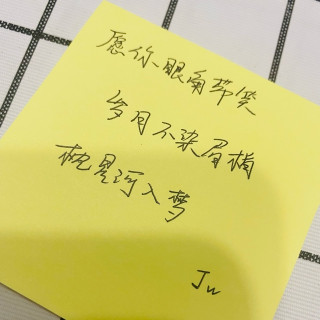 愿你眼角带笑
岁月不染眉梢
枕星河入梦
Jw